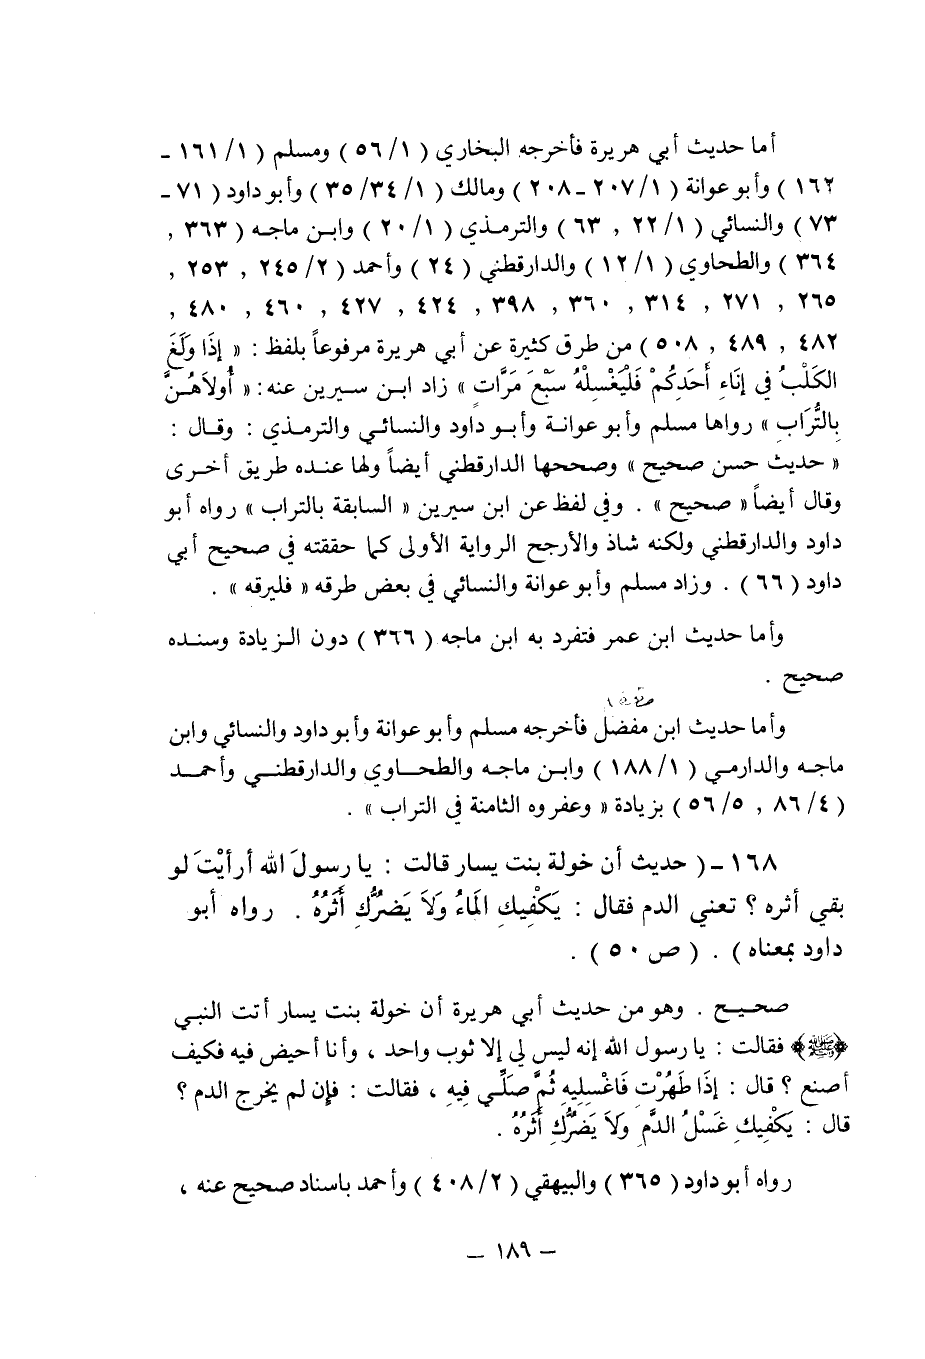 أما حديث أبي هريرة فأخرجه البخاري ( ١/ ٥٦ ) ومسلم ( ١/ ١٦١ ـ
١٦٢ ) وأبو عوانة ( ١/ ٢٠٧ ـ ٢٠٨ ) ومالك ( ١/ ٣٤/ ٣٥ ) وأبو داود ( ٧١ ـ
٧٣ ) والنسائي ( ١/ ٢٢ , ٦٣ ) والترمذي ( ١/ ٢٠ ) وابن ماجه ( ٣٦٣ ,
٣٦٤ ) والطحاوي ( ١/ ١٢ ) والدارقطني ( ٢٤ ) وأحمد ( ٢/ ٢٤٥ , ٢٥٣ ,
٢٦٥ , ٢٧١ , ٣١٤ , ٣٦٠ , ٣٩٨ , ٤٢٤ , ٤٢٧ , ٤٦٠ , ٤٨٠ ,
٤٨٢ , ٤٨٩ , ٥٠٨ ) من طرق كثيرة عن أبي هريرة مرفوعاً بلفظ : « إِذَا وَلَغَ
الكَلْبُ في إنَاءِ أَحَدِكُمْ فَلْيَغْسِلْهُ سَبْعَ مَرَّاتٍ » زاد ابن سيرين عنه : « أُولاَهُنَّ
بِالتُّرَابِ » رواها مسلم وأبو عوانة وأبو داود والنسائي والترمذي : وقال :
« حديث حسن صحيح » وصححها الدارقطني أيضاً ولها عنده طريق أخرى
وقال أيضاً « صحيح » . وفي لفظ عن ابن سيرين « السابقة بالتراب » رواه أبو
داود والدارقطني ولكنه شاذ والأرجح الرواية الأولى كما حققته في صحيح أبي
داود ( ٦٦ ) . وزاد مسلم وأبو عوانة والنسائي في بعض طرقه « فليرقه » .
وأما حديث ابن عمر فتفرد به ابن ماجه ( ٣٦٦ ) دون الزيادة وسنده
صحيح .
وأما حديث ابن مفضل فأخرجه مسلم وأبو عوانة وأبو داود والنسائي وابن
ماجه والدارمي ( ١/ ١٨٨ ) وابن ماجه والطحاوي والدارقطني وأحمد
( ٤/ ٨٦ , ٥/ ٥٦ ) بزيادة « وعفروه الثامنة في التراب » .
١٦٨ ـ ( حديث أن خولة بنت يسار قالت : يا رسولَ الله أرأيْتَ لو
بقي أثره ؟ تعني الدم فقال : يَكْفِيكِ المَاءُ وَلاَ يَضرُّكِ أَثَرُهُ . رواه أبو
داود بمعناه ) . ( ص ٥٠ ) .
صحيح . وهو من حديث أبي هريرة أن خولة بنت يسار أتت النبي
﴿ﷺ﴾ فقالت : يا رسول الله إنه ليس لي إلا ثوب واحد ، وأنا أحيض فيه فكيف
أصنع ؟ قال : إِذَا طَهُرْتِ فَاغْسِلِيهِ ثُمَّ صَلِّي فِيهِ ، فقالت : فإن لم يخرج الدم ؟
قال : يَكْفِيكِ غَسْلُ الدَّمِ وَلاَ يَضرُّكِ أَثَرُهُ .
رواه أبو داود ( ٣٦٥ ) والبيهقي ( ٢/ ٤٠٨ ) وأحمد باسناد صحيح عنه ،
– ١٨٩ –